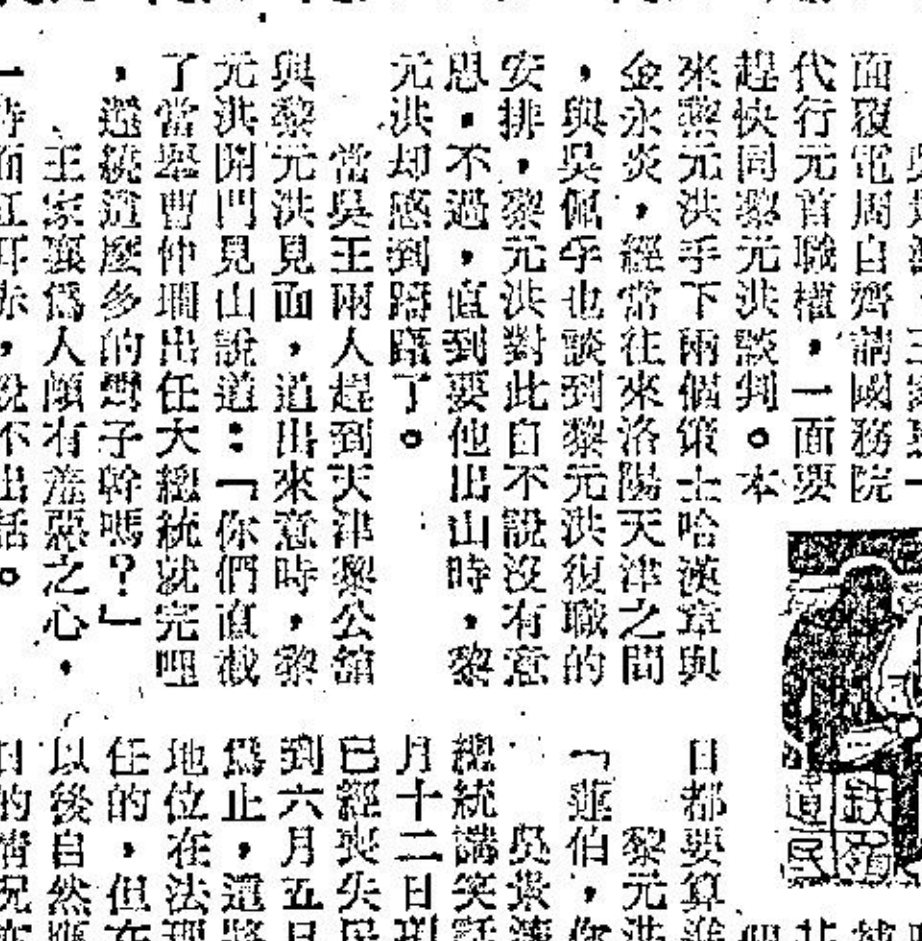 面覆電周自齊請國務院
代行元首職權，一面要
趕快同黎元洪談判。本
來黎元洪手下兩個策士哈漢章與
金永炎，經常往來洛陽天津之間
，與吳佩孚也談到黎元洪復職的
安排，黎元洪對此自不說沒有意
思。不過，直到要他出山時，黎
元洪却感到躊躇了。
當吳王兩人趕到天津黎公館
與黎元洪見面，道出來意時，黎
元洪開門見山說道：「你們直截
了當舉曹仲珊出任大總統就完哩
，選統這麼多的彎子幹嗎？」
王家襄為人頗有羞惡之心，
一時面紅耳赤，說不出話。
日都要算
黎元洪
「蓮伯，你
吳景濂
總統講笑話
月十二日
已經喪失
到六月五日
爲止，還
地位在法理
任的，但在
以後自然應
的情況
鉄嶺
道民